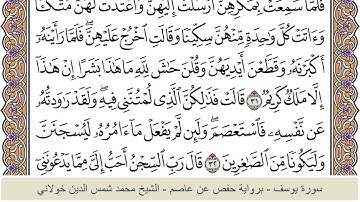 فَلَمَّا سَمِعَتْ بِمَكْرِهِنَّ أَرْسَلَتْ إِلَيْهِنَّ وَأَعْتَدَتْ لَهُنَّ مُتَّكَـًٔا
وَءَاتَتْ كُلَّ وَٰحِدَةٍ مِّنْهُنَّ سِكِّينًا وَقَالَتِ ٱخْرُجْ عَلَيْهِنَّ ۖ فَلَمَّا رَأَيْنَهُۥٓ
أَكْبَرْنَهُۥ وَقَطَّعْنَ أَيْدِيَهُنَّ وَقُلْنَ حَٰشَ لِلَّهِ مَا هَٰذَا بَشَرًا إِنْ هَٰذَآ
إِلَّا مَلَكٌ كَرِيمٌ ٣١ قَالَتْ فَذَٰلِكُنَّ ٱلَّذِى لُمْتُنَّنِى فِيهِ ۖ وَلَقَدْ رَٰوَدتُّهُۥ
عَن نَّفْسِهِۦ فَٱسْتَعْصَمَ ۖ وَلَئِن لَّمْ يَفْعَلْ مَآ ءَامُرُهُۥ لَيُسْجَنَنَّ
وَلَيَكُونًا مِّنَ ٱلصَّٰغِرِينَ ٣٢ قَالَ رَبِّ ٱلسِّجْنُ أَحَبُّ إِلَىَّ مِمَّا يَدْعُونَنِىٓ
سورة يوسف - برواية حفص عن عاصم - الشيخ محمد شمس الدين خولاني